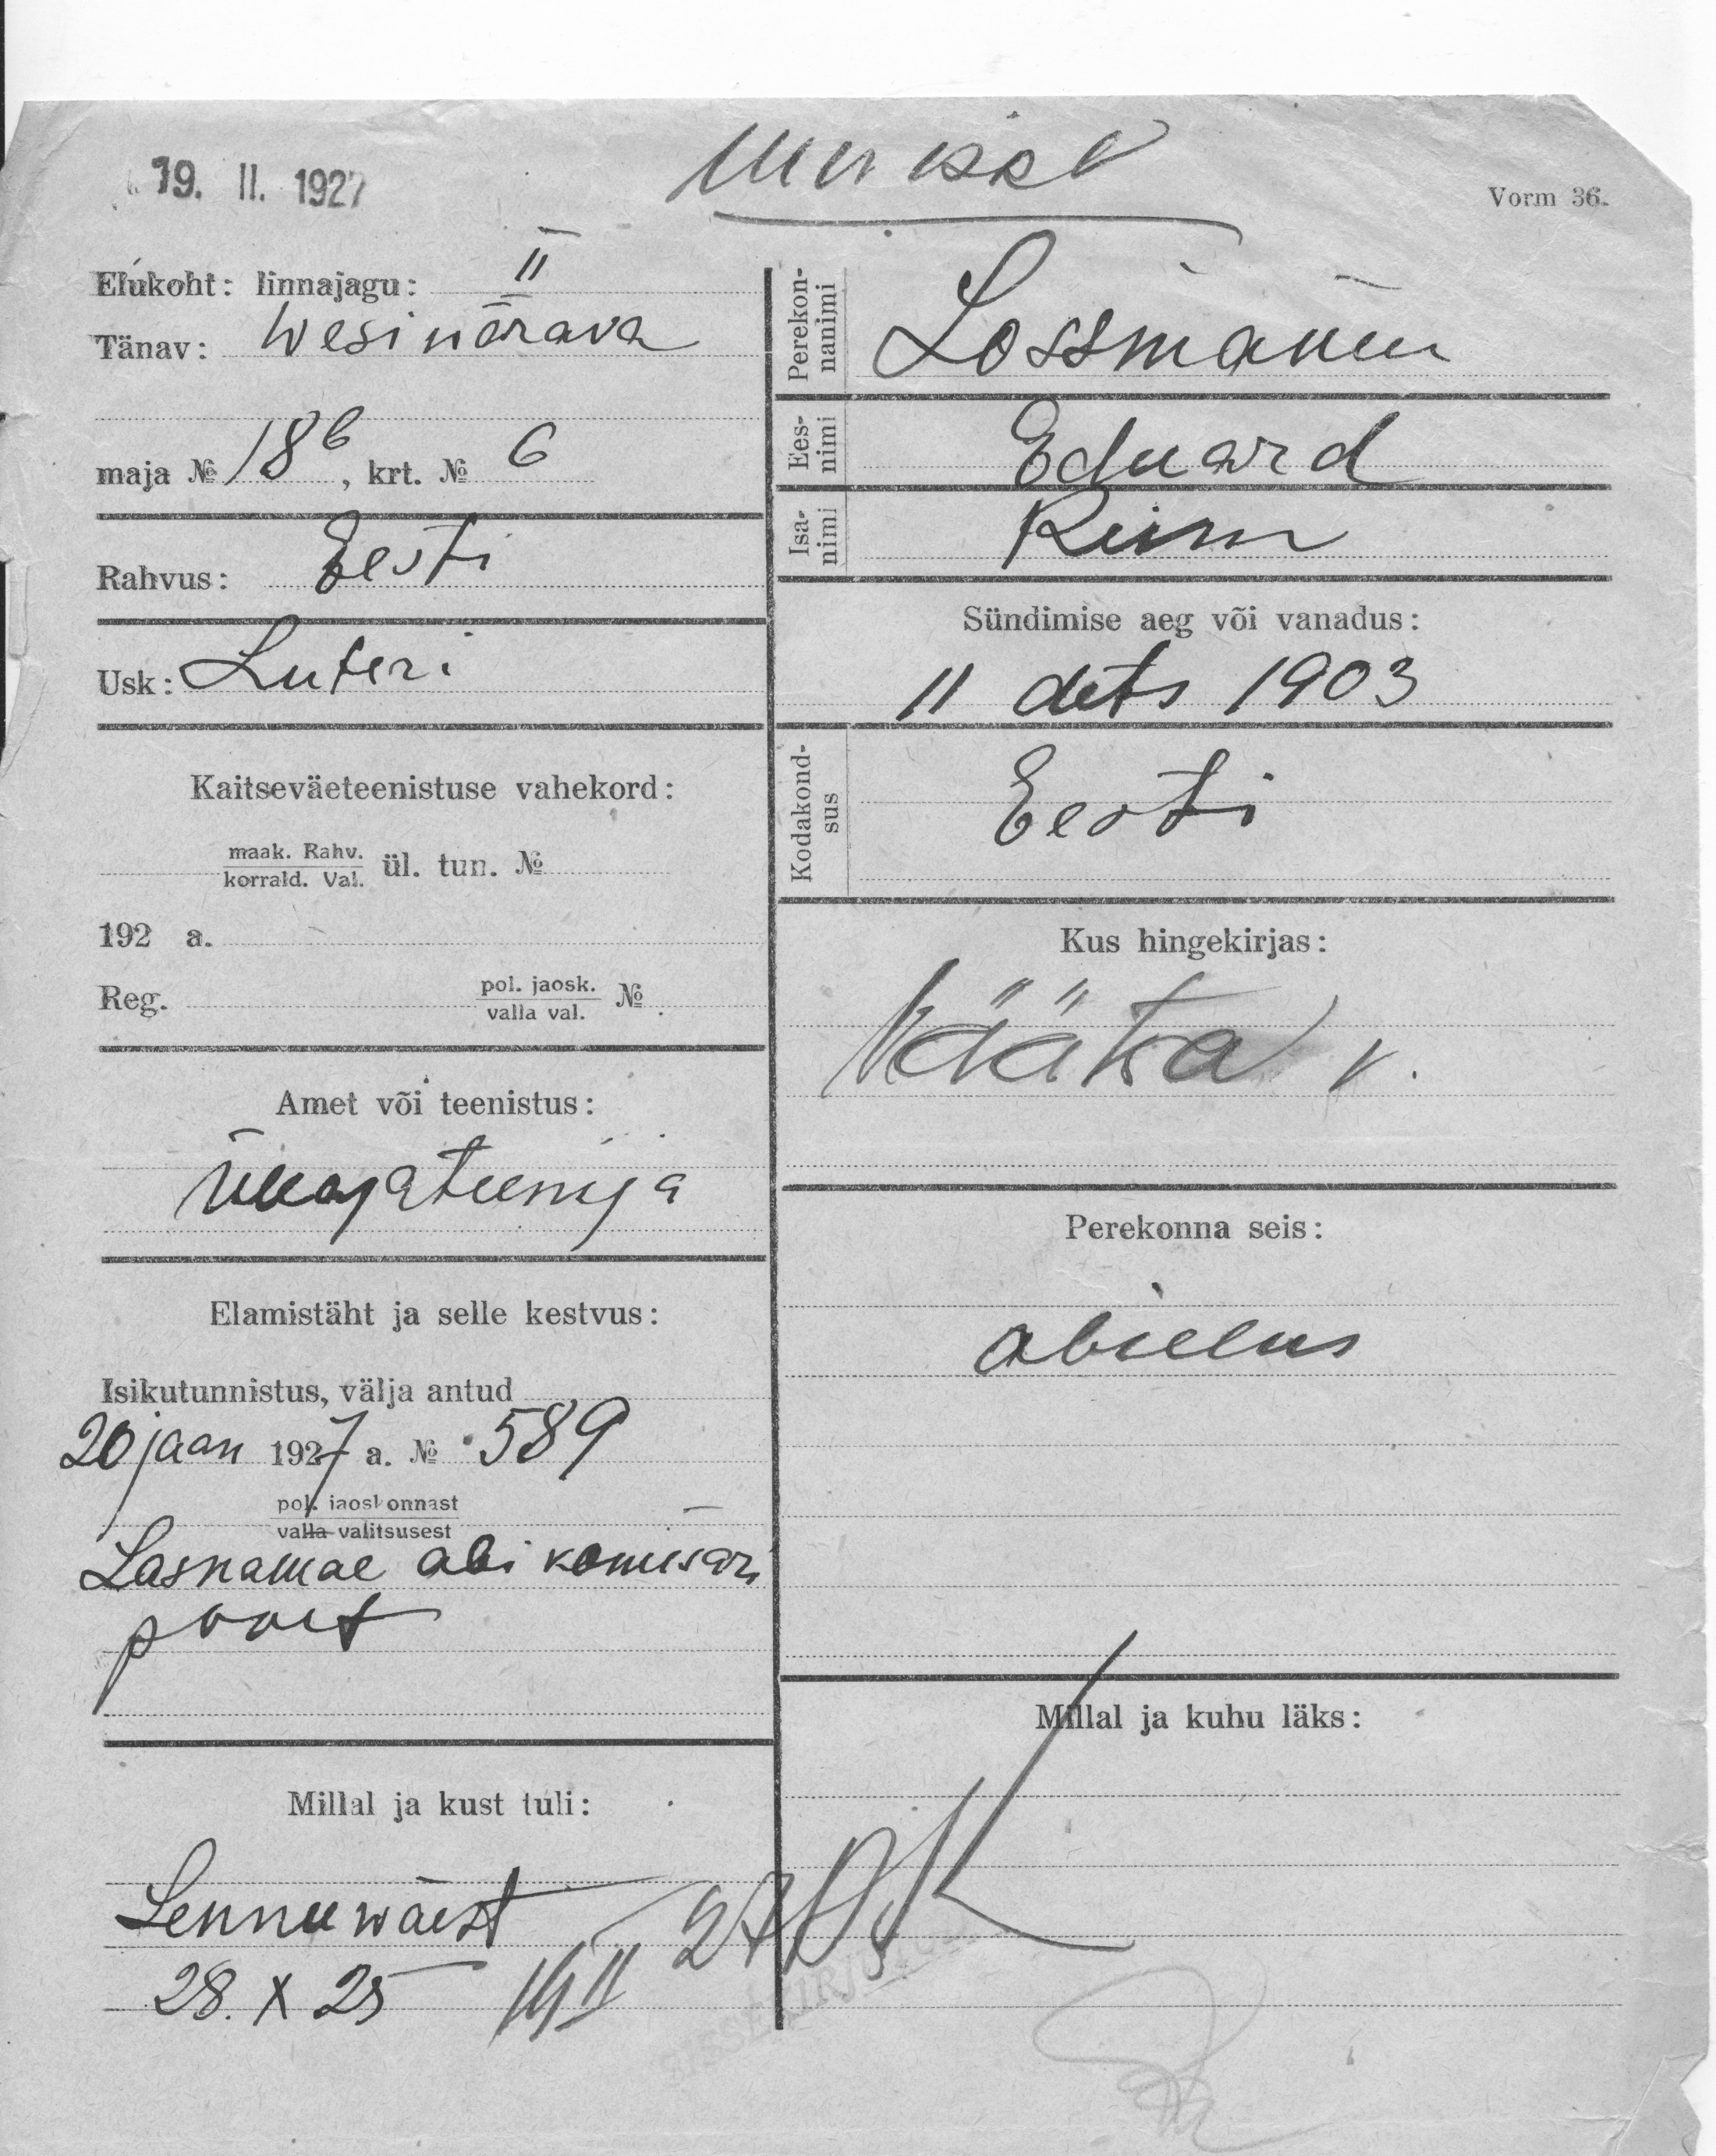 19. II. 1927
Vorm 36.
Elukoht: linnajagu: II
Tänav: Wesiwärava
maja № 18b, krt. № 6
Rahvus: Eesti
Usk: Luteri
Kaitseväeteenistuse vahekord:
maak. Rahv.
korrald. Val. ül. tun. №
192 a.
Reg. pol. jaosk.
valla val. №
Amet või teenistus:
Üleajateenija
Elamistäht ja selle kestvus:
Isikutunnistus, välja antud
20 jaan 1927 a. № 589
pol. jaoskonnast
valla valitsusest
Lasnamäe abi komisari
poolt
Millal ja kust tuli:
Lennuwäest
28. X 25
19 II 27
Perekonnanimi
Lossmann
Eesnimi
Eduard
Isanimi
Sündimise aeg või vanadus:
11 dets 1903
Kodakondsus
Eesti
Kus hingekirjas:
Väätsa v.
Perekonna seis:
abielus
Millal ja kuhu läks: